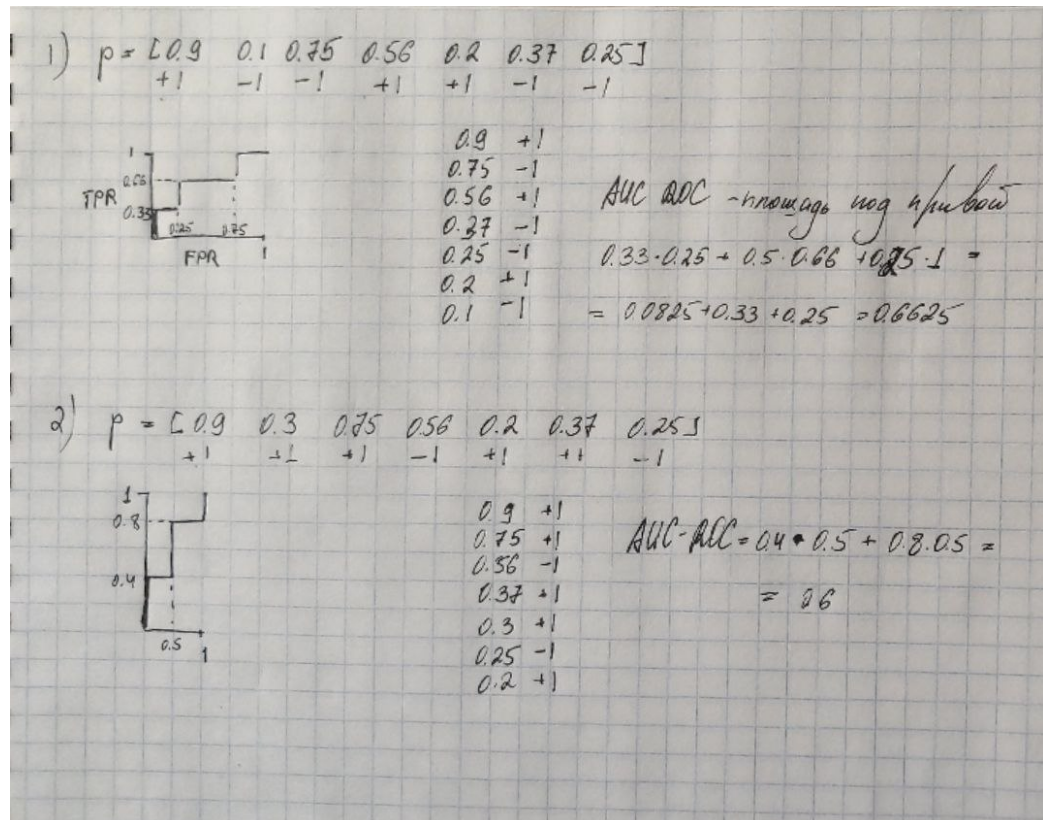 1) p = [0.9 0.1 0.75 0.56 0.2 0.37 0.25]
+1 -1 -1 +1 +1 -1 -1
1
0.66
TPR
0.33
0.25 0.75 1
FPR
0.9 +1
0.75 -1
0.56 +1
0.37 -1
0.25 -1
0.2 +1
0.1 -1
AUC ROC - площадь под кривой
0.33·0.25 + 0.5·0.66 + 0.25·1 =
= 0.0825+0.33+0.25 = 0.6625
2) p = [0.9 0.3 0.75 0.56 0.2 0.37 0.25]
+1 +1 +1 -1 +1 +1 -1
1
0.8
0.4
0.5 1
0.9 +1
0.75 +1
0.56 -1
0.37 +1
0.3 +1
0.25 -1
0.2 +1
AUC-ROC = 0.4 · 0.5 + 0.8·0.5 =
= 0.6